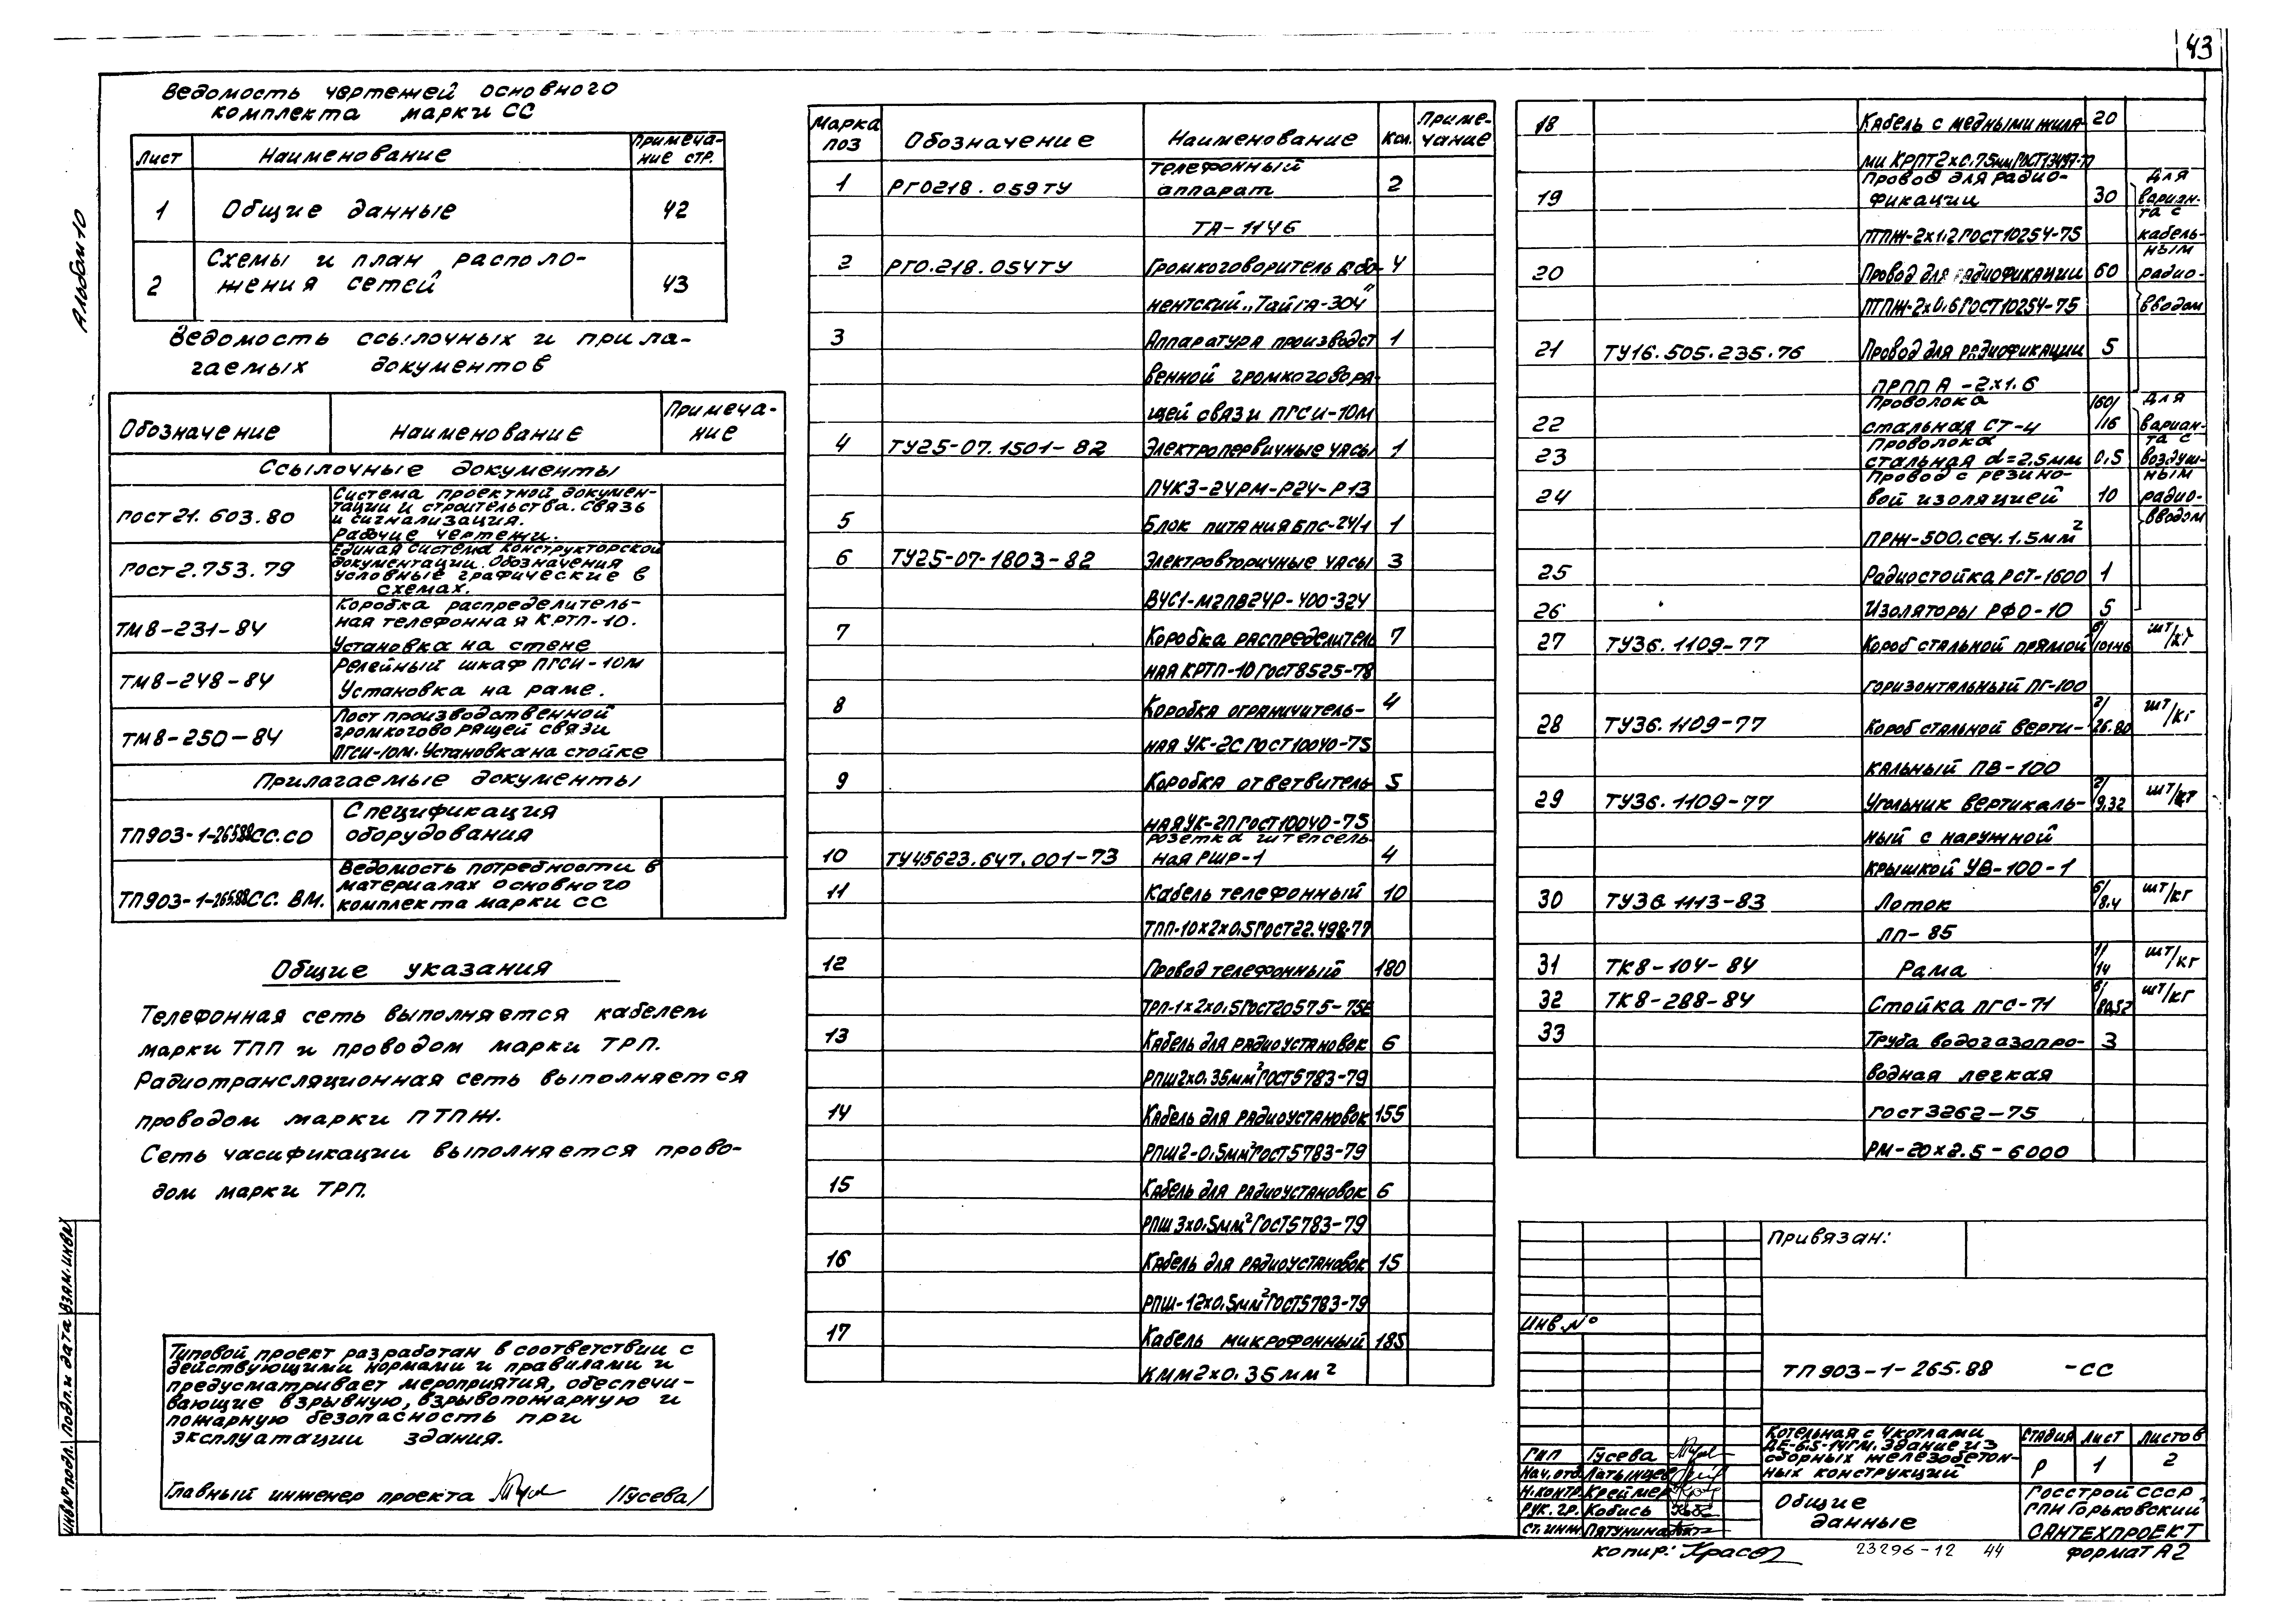 43
Альбом 10
Ведомость чертежей основного
комплекта марки СС
Лист Наименование Примеча-
ние стр.
1 Общие данные 42
2 Схемы и план располо-
жения сетей 43
Ведомость ссылочных и прила-
гаемых документов
Обозначение Наименование Примеча-
ние
Ссылочные документы
ГОСТ 21.603.80 Система проектной докумен-
тации и строительства. Связь
и сигнализация.
Рабочие чертежи.
ГОСТ 2.753.79 Единая система конструкторской
документации. Обозначения
условные графические в
схемах.
ТМ8-231-84 Коробка распределитель-
ная телефонная КРТП-10.
Установка на стене
ТМ8-248-84 Релейный шкаф ПГСИ-10М
Установка на раме.
ТМ8-250-84 Пост производственной
громкоговорящей связи
ПГСИ-10М. Установка на стойке
Прилагаемые документы
ТП903-1-265.88СС.СО Спецификация
оборудования
ТП903-1-265.88СС.ВМ. Ведомость потребности в
материалах основного
комплекта марки СС
Общие указания
Телефонная сеть выполняется кабелем
марки ТПП и проводом марки ТРП.
Радиотрансляционная сеть выполняется
проводом марки ПТПЖ.
Сеть часификации выполняется прово-
дом марки ТРП.
Типовой проект разработан в соответствии с
действующими нормами и правилами и
предусматривает мероприятия, обеспечи-
вающие взрывную, взрывопожарную и
пожарную безопасность при
эксплуатации здания.
Главный инженер проекта /Гусева/
Марка
поз Обозначение Наименование Кол. Приме-
чание
1 РГО218.059ТУ Телефонный
аппарат 2
ТА-1146
2 РГО.218.054ТУ Громкоговоритель або- 4
нентский „Тайга-304"
3 Аппаратура производст 1
венной громкоговоря-
щей связи ПГСИ-10М
4 ТУ25-07.1501-82 Электропервичные часы 1
ПЧК3-24РМ-Р24-Р13
5 Блок питания БПС-24/1 1
6 ТУ25-07-1803-82 Электровторичные часы 3
ВЧС1-М2ПВ24Р-400-324
7 Коробка распределитель 7
ная КРТП-10 ГОСТ8525-78
8 Коробка ограничитель- 4
ная УК-2С ГОСТ10040-75
9 Коробка ответвитель 5
ная УК-2П ГОСТ10040-75
10 ТУ45623.647.001-73 Розетка штепсель-
ная РШР-1 4
11 Кабель телефонный 10
ТПП-10х2х0.5 ГОСТ22.498-77
12 Провод телефонный 180
ТРП-1х2х0.5 ГОСТ20575-75Е
13 Кабель для радиоустановок 6
РПШ2х0.35мм² ГОСТ5783-79
14 Кабель для радиоустановок 155
РПШ2-0.5мм² ГОСТ5783-79
15 Кабель для радиоустановок 6
РПШ 3х0.5мм² ГОСТ5783-79
16 Кабель для радиоустановок 15
РПШ-12х0.5мм² ГОСТ5783-79
17 Кабель микрофонный 185
КММ2х0.35мм²
18 Кабель с медными жила- 20
ми КРПТ2х0.75мм ГОСТ13497-77
19 Провод для радио-
фикации 30
ПТПЖ-2х1.2 ГОСТ10254-75
20 Провод для радиофикации 60
ПТПЖ-2х0.6 ГОСТ10254-75
21 ТУ16.505.235.76 Провод для радиофикации 5
ПРППА-2х1.6
для
вариан-
та с
кабель-
ным
радио-
вводом
22 Проволока
стальная СТ-4 160/
/16
23 Проволока
стальная d=2.5мм 0.5
24 Провод с резино-
вой изоляцией 10
ПРЖ-500, сеч. 1.5мм²
25 Радиостойка РСТ-1600 1
26 Изоляторы РФО-10 5
для
вариан-
та с
воздуш-
ным
радио-
вводом
27 ТУ36.1109-77 Короб стальной прямой 6/ шт/кг
горизонтальный ПГ-100
28 ТУ36.1109-77 Короб стальной верти- 2/26.80 шт/кг
кальный ПВ-100
29 ТУ36.1109-77 Угольник вертикаль- 2/9.32 шт/кг
ный с наружной
крышкой УВ-100-1
30 ТУ36 1113-83 Лоток 6/8.4 шт/кг
ЛП-85
31 ТК8-104-84 Рама 1/14 шт/кг
32 ТК8-288-84 Стойка ПГС-71 шт/кг
33 Труба водогазопро- 3
водная легкая
ГОСТ 3262-75
РМ-20х2.5-6000
Привязан:
Инв.№
ТП 903-1-265.88 -СС
Котельная с 4 котлами
ДЕ-6,5-14ГМ. Здание из
сборных железобетон-
ных конструкций
Стадия Лист Листов
Р 1 2
Общие
данные
Госстрой СССР
ГПИ Горьковский
САНТЕХПРОЕКТ
ГИП Гусева
Нач.отд. Латынцев
Н.контр. Креймер
Рук.гр. Кобись
Ст.инж. Пятунина
копир: Красо
23296-12 44
формат А2
Инв№подл. Подп.и дата Взам.инв№